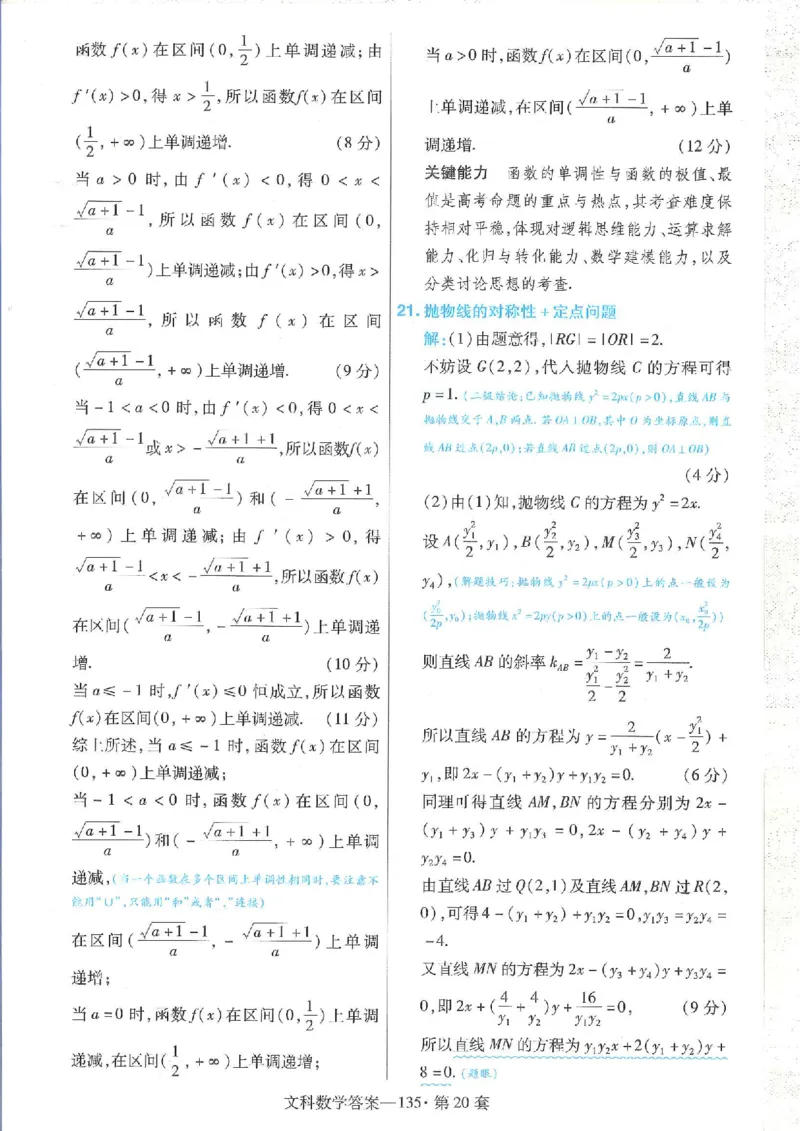 函数 f(x) 在区间 (0, 1/2) 上单调递减;由
f′(x)>0,得 x>1/2,所以函数f(x)在区间
(1/2,+∞)上单调递增. (8分)
当 a > 0 时,由 f ′(x) < 0,得 0 < x <
(√(a+1)-1)/a,所以函数 f(x)在区间(0,
(√(a+1)-1)/a)上单调递减;由f′(x)>0,得x>
(√(a+1)-1)/a,所以函数 f(x)在区间
((√(a+1)-1)/a,+∞)上单调递增. (9分)
当-1<a<0时,由f′(x)<0,得0<x<
(√(a+1)-1)/a或x>-(√(a+1)+1)/a,所以函数f(x)
在区间(0,(√(a+1)-1)/a)和(-(√(a+1)+1)/a,
+∞)上单调递减;由 f ′(x) > 0,得
(√(a+1)-1)/a<x<-(√(a+1)+1)/a,所以函数f(x)
在区间((√(a+1)-1)/a,-(√(a+1)+1)/a)上单调递
增. (10分)
当a≤-1时,f′(x)≤0恒成立,所以函数
f(x)在区间(0,+∞)上单调递减. (11分)
综上所述,当a≤-1时,函数f(x)在区间
(0,+∞)上单调递减;
当-1<a<0时,函数f(x)在区间(0,
(√(a+1)-1)/a)和(-(√(a+1)+1)/a,+∞)上单调
递减,(当一个函数在多个区间上单调性相同时,要注意不
能用“∪”,只能用“和”或者“,”连接)
在区间((√(a+1)-1)/a,-(√(a+1)+1)/a)上单调
递增;
当a=0时,函数f(x)在区间(0,1/2)上单调
递减,在区间(1/2,+∞)上单调递增;
当a>0时,函数f(x)在区间(0,(√(a+1)-1)/a)
上单调递减,在区间((√(a+1)-1)/a,+∞)上单
调递增. (12分)
关键能力 函数的单调性与函数的极值、最
值是高考命题的重点与热点,其考查难度保
持相对平稳,体现对逻辑思维能力、运算求解
能力、化归与转化能力、数学建模能力,以及
分类讨论思想的考查.
21.抛物线的对称性+定点问题
解:(1)由题意得,|RG|=|OR|=2.
不妨设G(2,2),代入抛物线C的方程可得
p=1.(二级结论:已知抛物线y²=2px(p>0),直线AB与
抛物线交于A,B两点.若OA⊥OB,其中O为坐标原点,则直
线AB过点(2p,0);若直线AB过点(2p,0),则OA⊥OB)
(4分)
(2)由(1)知,抛物线C的方程为y²=2x.
设A(y₁²/2,y₁),B(y₂²/2,y₂),M(y₃²/2,y₃),N(y₄²/2,
y₄),(解题技巧:抛物线y²=2px(p>0)上的点一般设为
(y₀²/2p,y₀);抛物线x²=2py(p>0)上的点一般设为(x₀,x₀²/2p))
则直线AB的斜率k_AB=(y₁-y₂)/(y₁²/2-y₂²/2)=2/(y₁+y₂).
所以直线AB的方程为y=2/(y₁+y₂)(x-y₁²/2)+
y₁,即2x-(y₁+y₂)y+y₁y₂=0. (6分)
同理可得直线AM,BN的方程分别为2x-
(y₁+y₃)y+y₁y₃=0,2x-(y₂+y₄)y+
y₂y₄=0.
由直线AB过Q(2,1)及直线AM,BN过R(2,
0),可得4-(y₁+y₂)+y₁y₂=0,y₁y₃=y₂y₄=
-4.
又直线MN的方程为2x-(y₃+y₄)y+y₃y₄=
0,即2x+(4/y₁+4/y₂)y+16/(y₁y₂)=0, (9分)
所以直线MN的方程为y₁y₂x+2(y₁+y₂)y+
8=0.(题眼)
文科数学答案—135·第20套